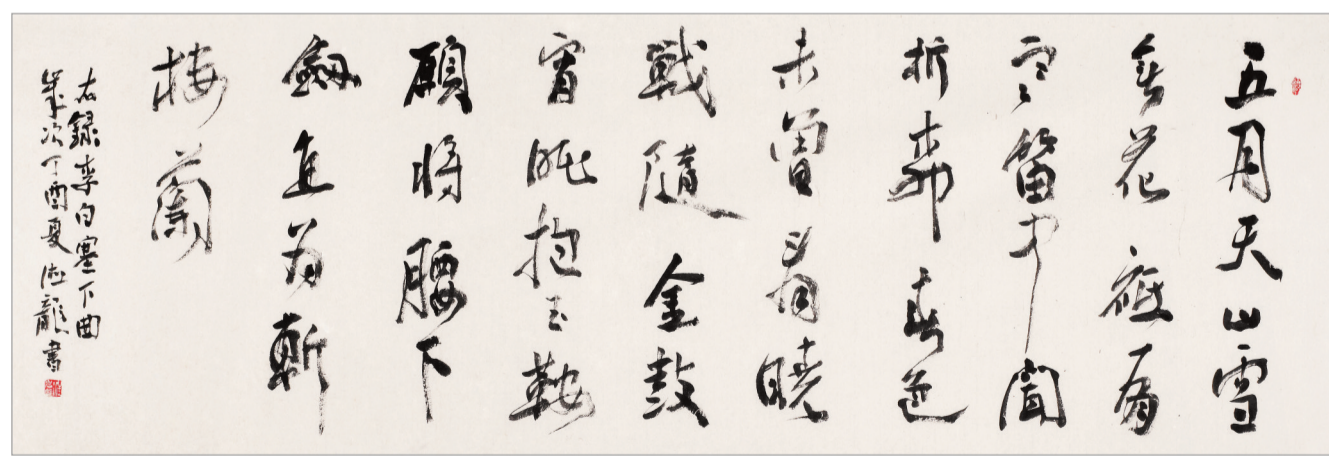 五月天山雪
無花祇有
寒笛中聞
折柳春色
未曾看曉
戰隨金鼓
宵眠抱玉鞍
願將腰下
劍直為斬
樓蘭
右錄李白塞下曲
歲次丁酉夏龍書